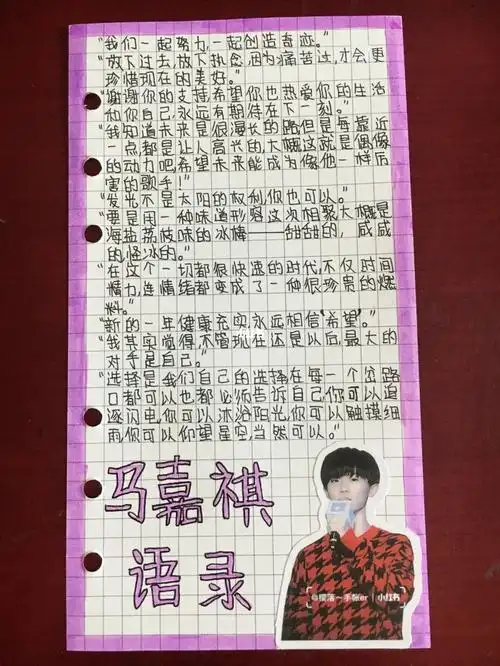 “我们一起努力,一起创造奇迹。”
“放下过去,放下执念,因为痛苦过,才会更
珍惜现在的美好。”
“谢谢你的支持,希望你也热爱你的生活
和你自己,永远有期待在下一刻。”
“我知道未来是很漫长的路但是每靠近
一点,都是让人高兴的大概这就是偶像
的动力吧,希望未来能成为像他一样厉
害的歌手!”
“发光不是太阳的权利,你也可以。”
“要是用一种味道形容这次相聚大概是
海盐荔枝味的冰棒——甜甜的,咸咸
的,怪冰的。”
“在这个一切都很快速的时代,不仅时间
精力,连情绪都变成了一种很珍贵的燃
料。”
“新的一年健康充实,永远相信‘希望’。”
“我其实觉得,不管现在还是以后,最大的
对手是自己。”
“选择是我们自己的选择在每一个岔路
口都可以也都必须告诉自己,你可以追
逐闪电,你可以沐浴阳光,你可以触摸细
雨,你可以仰望星空,当然可以。”
马嘉祺
语录
@樱落~手帐er | 小红书